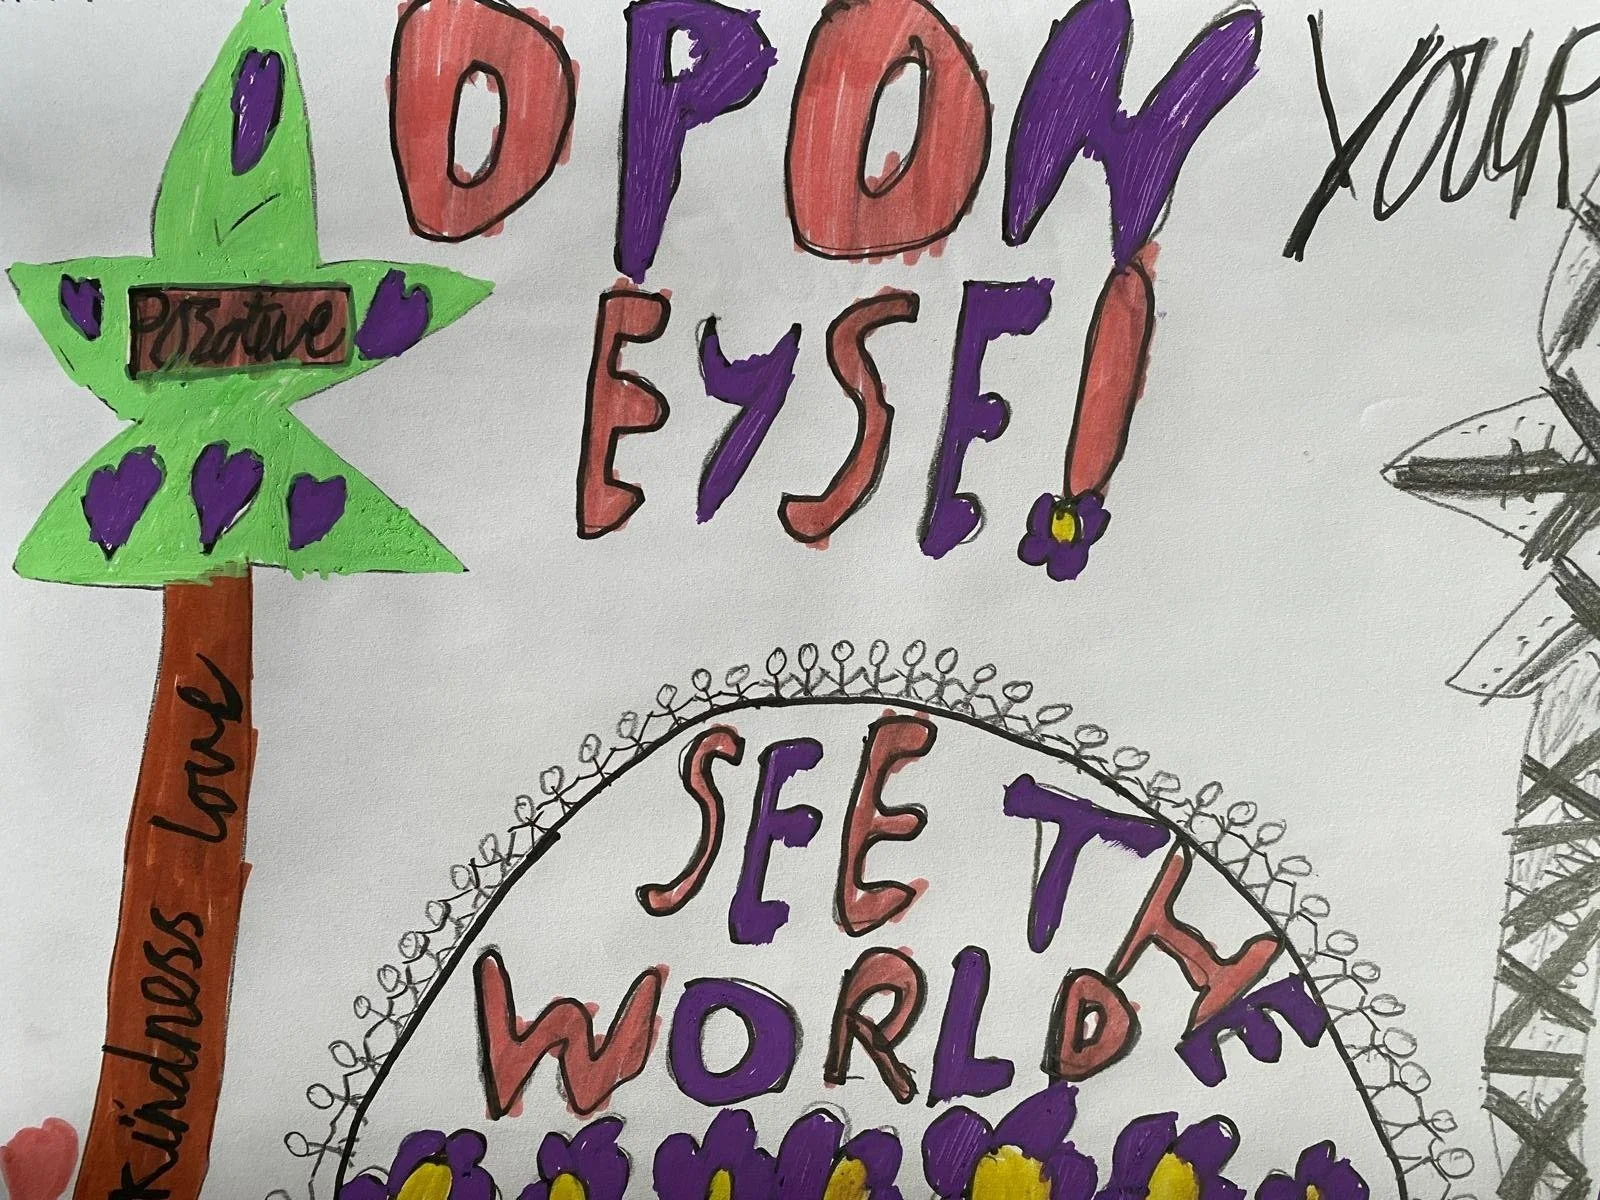 OPON YOUR
EYSE!
Posotive
SEE THE
WORLD
kindness love